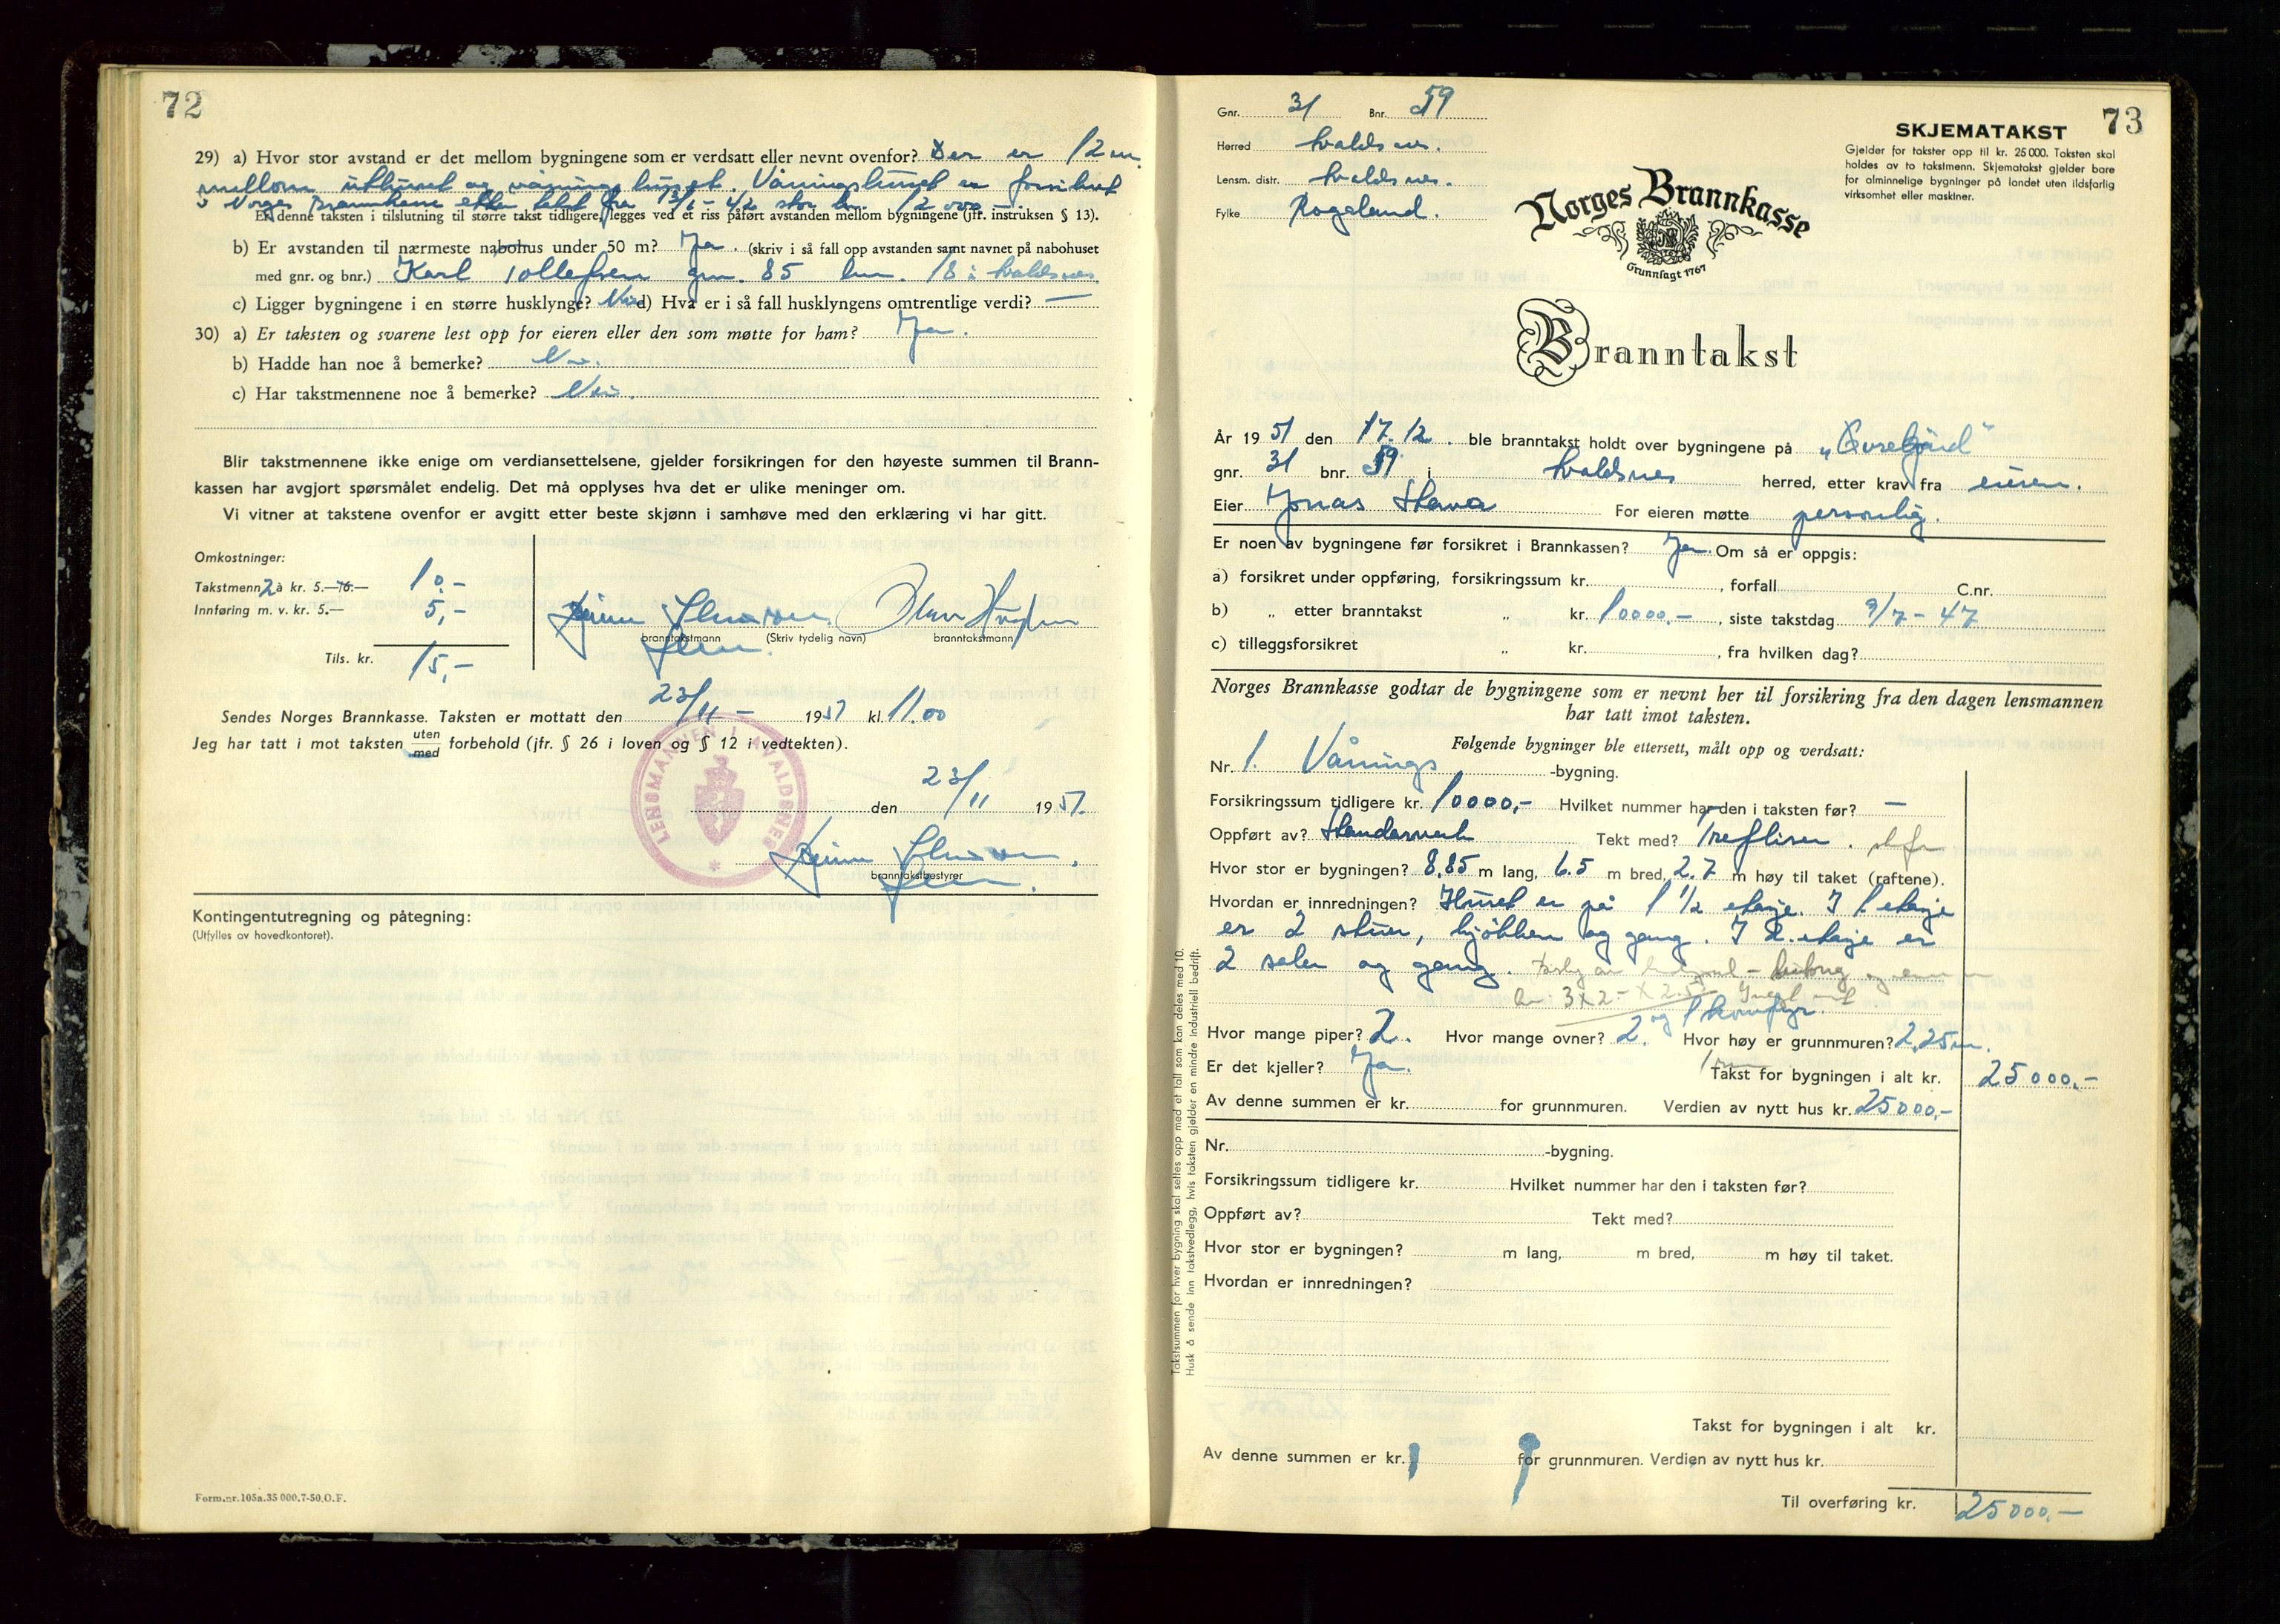 72
29) a) Hvor stor avstand er det mellom bygningene som er verdsatt eller nevnt ovenfor? Der er 12 m.
mellom uthuset og våningshuset. Våningshuset er forsikret
i Norges Brannkasse etter takst fra 13/6 - 42 stor kr. 12 000 -.
Er denne taksten i tilslutning til større takst tidligere, legges ved et riss påført avstanden mellom bygningene (jfr. instruksen § 13).
b) Er avstanden til nærmeste nabohus under 50 m? Ja. (skriv i så fall opp avstanden samt navnet på nabohuset
med gnr. og bnr.) Karl Tollefsen gnr. 85 bnr. 18 i Avaldsnes
c) Ligger bygningene i en større husklynge? Nei d) Hva er i så fall husklyngens omtrentlige verdi? —
30) a) Er taksten og svarene lest opp for eieren eller den som møtte for ham? Ja.
b) Hadde han noe å bemerke? Nei.
c) Har takstmennene noe å bemerke? Nei.
Blir takstmennene ikke enige om verdiansettelsene, gjelder forsikringen for den høyeste summen til Brann-
kassen har avgjort spørsmålet endelig. Det må opplyses hva det er ulike meninger om.
Vi vitner at takstene ovenfor er avgitt etter beste skjønn i samhøve med den erklæring vi har gitt.
Omkostninger:
Takstmenn 2 à kr. 5.— 10.— 10,-
Innføring m. v. kr. 5.— 5,-
branntakstmann (Skriv tydelig navn) branntakstmann
Tils. kr. 15,-
Sendes Norges Brannkasse. Taksten er mottatt den 23/11 - 1951 kl. 11.00
Jeg har tatt i mot taksten uten/med forbehold (jfr. § 26 i loven og § 12 i vedtekten).
LENSMANNEN I AVALDSNES
den 23/11 1951.
branntakstbestyrer
Kontingentutregning og påtegning:
(Utfylles av hovedkontoret).
Form.nr.105a.35 000.7-50.O.F.
73
Gnr. 31 Bnr. 59
Herred Avaldsnes.
Lensm. distr. Avaldsnes.
Fylke Rogaland.
SKJEMATAKST
Gjelder for takster opp til kr. 25 000. Taksten skal
holdes av to takstmenn. Skjematakst gjelder bare
for alminnelige bygninger på landet uten ildsfarlig
virksomhet eller maskiner.
Norges Brannkasse
Grunnlagt 1767
Branntakst
År 19 51 den 17.12. ble branntakst holdt over bygningene på
gnr. 31 bnr. 59 i Avaldsnes herred, etter krav fra eieren.
Eier Jonas Hava For eieren møtte personlig.
Er noen av bygningene før forsikret i Brannkassen? Ja. Om så er oppgis:
a) forsikret under oppføring, forsikringssum kr. , forfall C.nr.
b) „ etter branntakst „ kr. 10000,- , siste takstdag 9/7 - 47
c) tilleggsforsikret „ kr. , fra hvilken dag?
Norges Brannkasse godtar de bygningene som er nevnt her til forsikring fra den dagen lensmannen
har tatt imot taksten.
Følgende bygninger ble ettersett, målt opp og verdsatt:
Nr. 1. Vånings -bygning.
Forsikringssum tidligere kr. 10000,- Hvilket nummer har den i taksten før? —
Oppført av? Standerverk Tekt med? Trefliser.
Hvor stor er bygningen? 8,85 m lang, 6.5 m bred, 2.7 m høy til taket (raftene).
Hvordan er innredningen? Huset er på 1 1/2 etasje. I 1. etasje
er 2 stuer, kjökken og gang. I 2. etasje er
2 saler og gang.
3 x 2 - x 2.5
og 1 komfyr.
Hvor mange piper? 2. Hvor mange ovner? 2. Hvor høy er grunnmuren? 2,25 m.
Er det kjeller? Ja. Takst for bygningen i alt kr. 25 000,-
Av denne summen er kr. for grunnmuren. Verdien av nytt hus kr. 25000,-
Nr. -bygning.
Forsikringssum tidligere kr. Hvilket nummer har den i taksten før?
Oppført av? Tekt med?
Hvor stor er bygningen? m lang, m bred, m høy til taket.
Hvordan er innredningen?
Takst for bygningen i alt kr.
Av denne summen er kr. for grunnmuren. Verdien av nytt hus kr.
Til overføring kr. 25000,-
Takstsummen for hver bygning skal settes opp med et tall som kan deles med 10.
Husk å sende inn takstvedlegg, hvis taksten gjelder en mindre industriell bedrift.